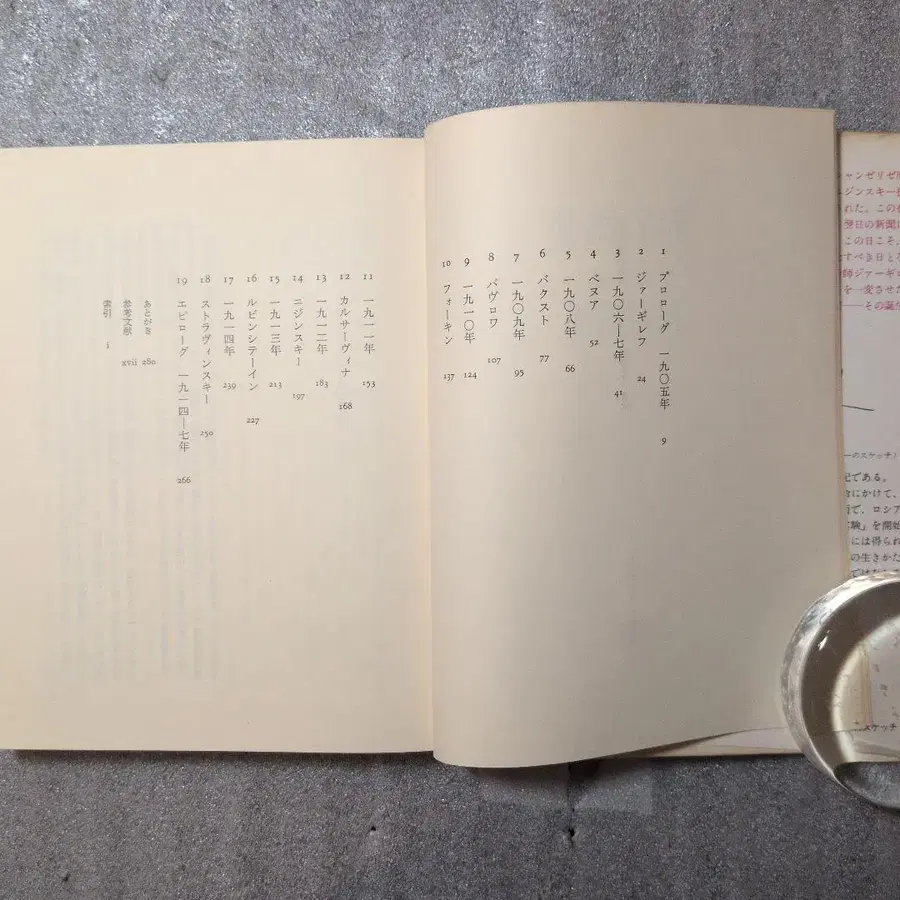 1 プロローグ 一九〇五年 9
2 ジァーギレフ 24
3 一九〇六―七年 41
4 ベヌア 52
5 一九〇八年 66
6 バクスト 77
7 一九〇九年 95
8 パヴロワ 107
9 一九一〇年 124
10 フォーキン 137
11 一九一一年 153
12 カルサーヴィナ 168
13 一九一二年 183
14 ニジンスキー 197
15 一九一三年 213
16 ルビンシテーイン 227
17 一九一四年 239
18 ストラヴィンスキー 250
19 エピローグ 一九一四―七年 266
あとがき 280
参考文献 xvii
索引 i
シャンゼリゼ
ジンスキー
された。この
翌日の新聞に
この日こそ、
すべき日と
師ジァーギ
を一変させた
――その誕生
ーのスケッチ）
記である。
にかけて、
で、ロシア
験」を開始
には得られ
の生きかた
スケッチ